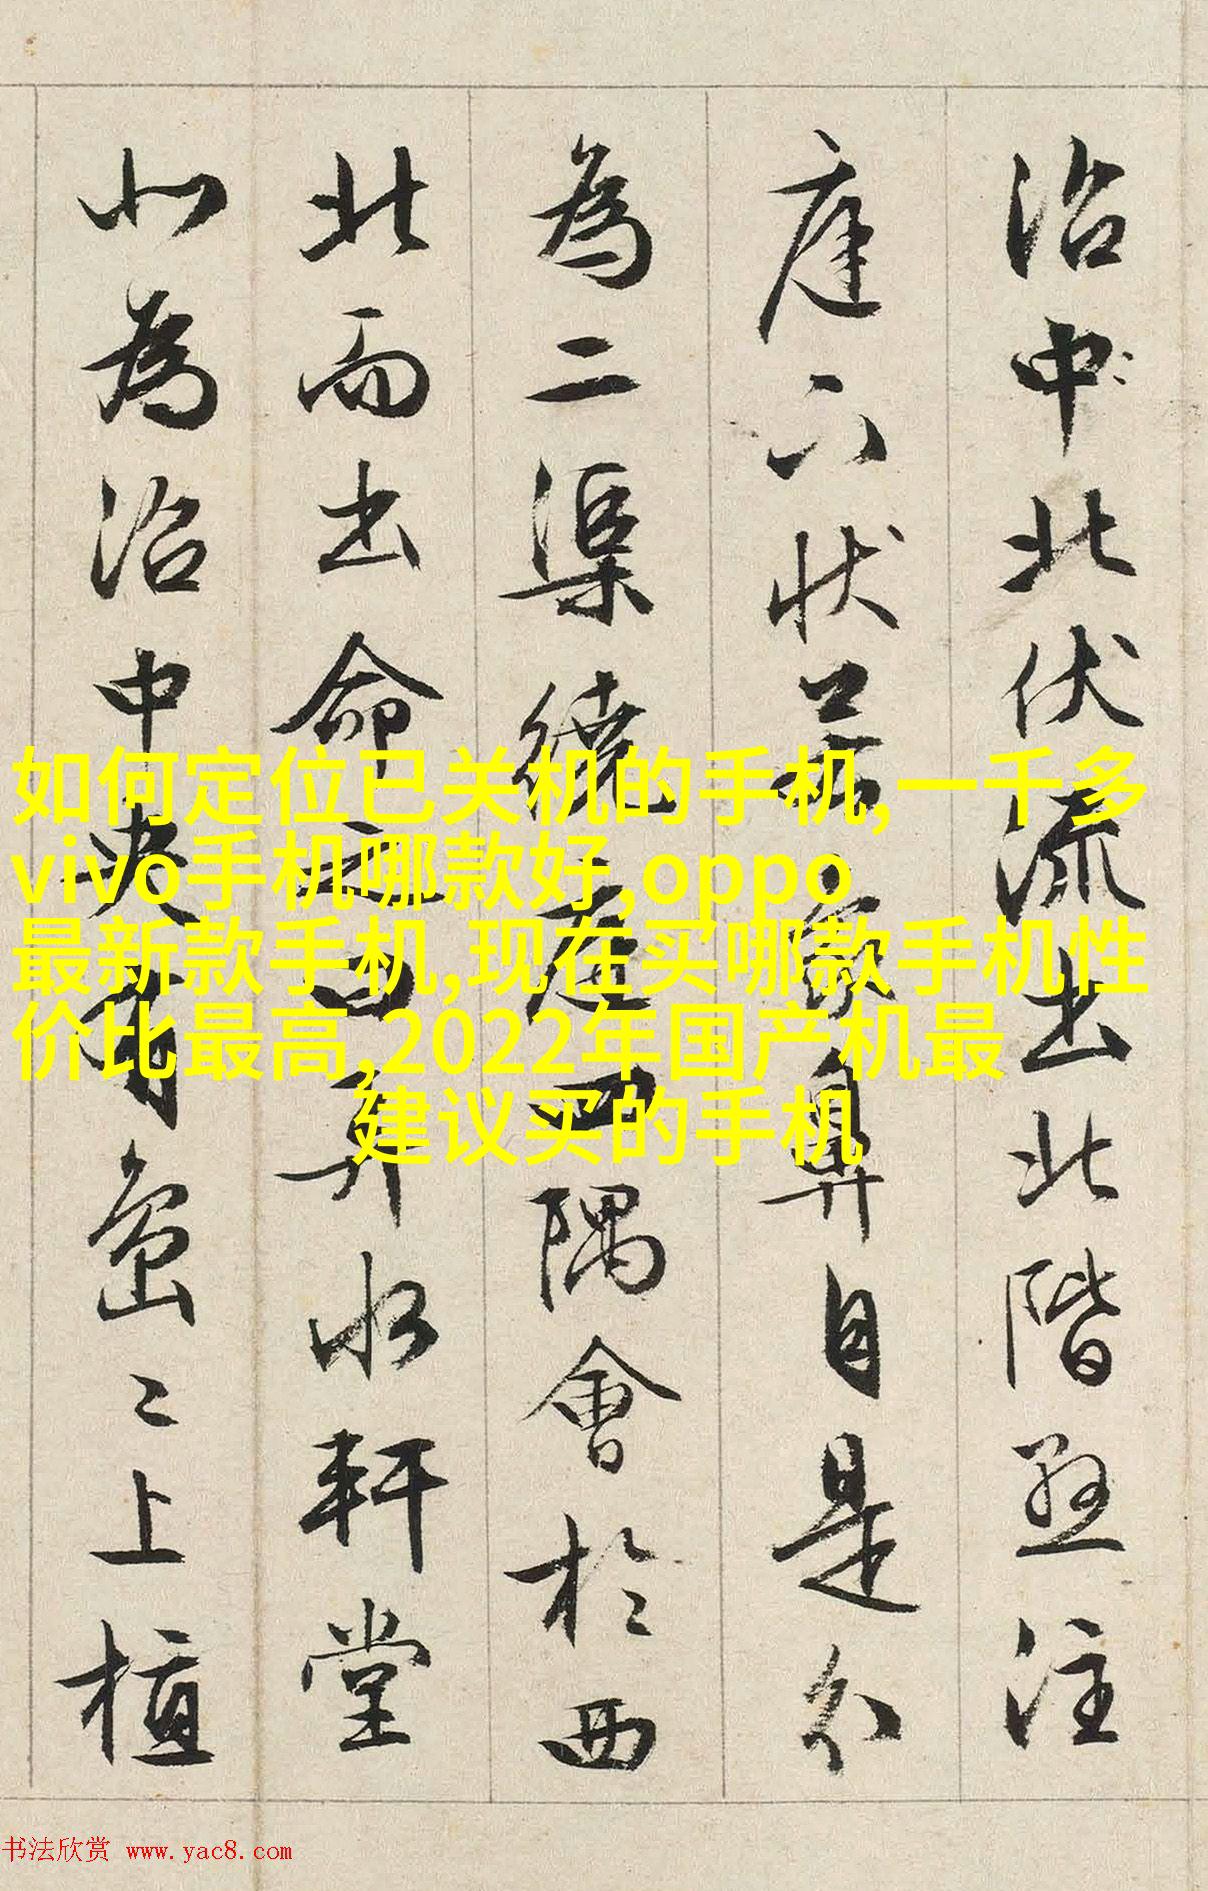 沼中北伏流出北階懸注
庭下狀若象鼻自是分
為二渠繞庭四隅會於西
北而出命之曰弄水軒堂
北為沼中央有島〻上植
如何定位已关机的手机,一千多
vivo手机哪款好,oppo
最新款手机,现在买哪款手机性
价比最高,2022年国产机最
建议买的手机
书法欣赏 www.yac8.com